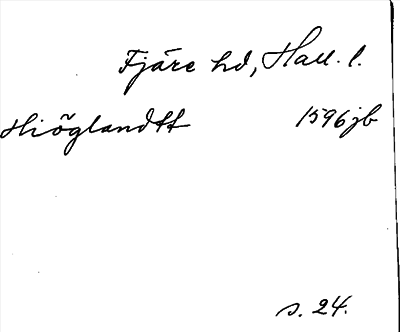 Fjäre hd, Hall. l.
Hiöglandtt 1596 jb
s. 24.